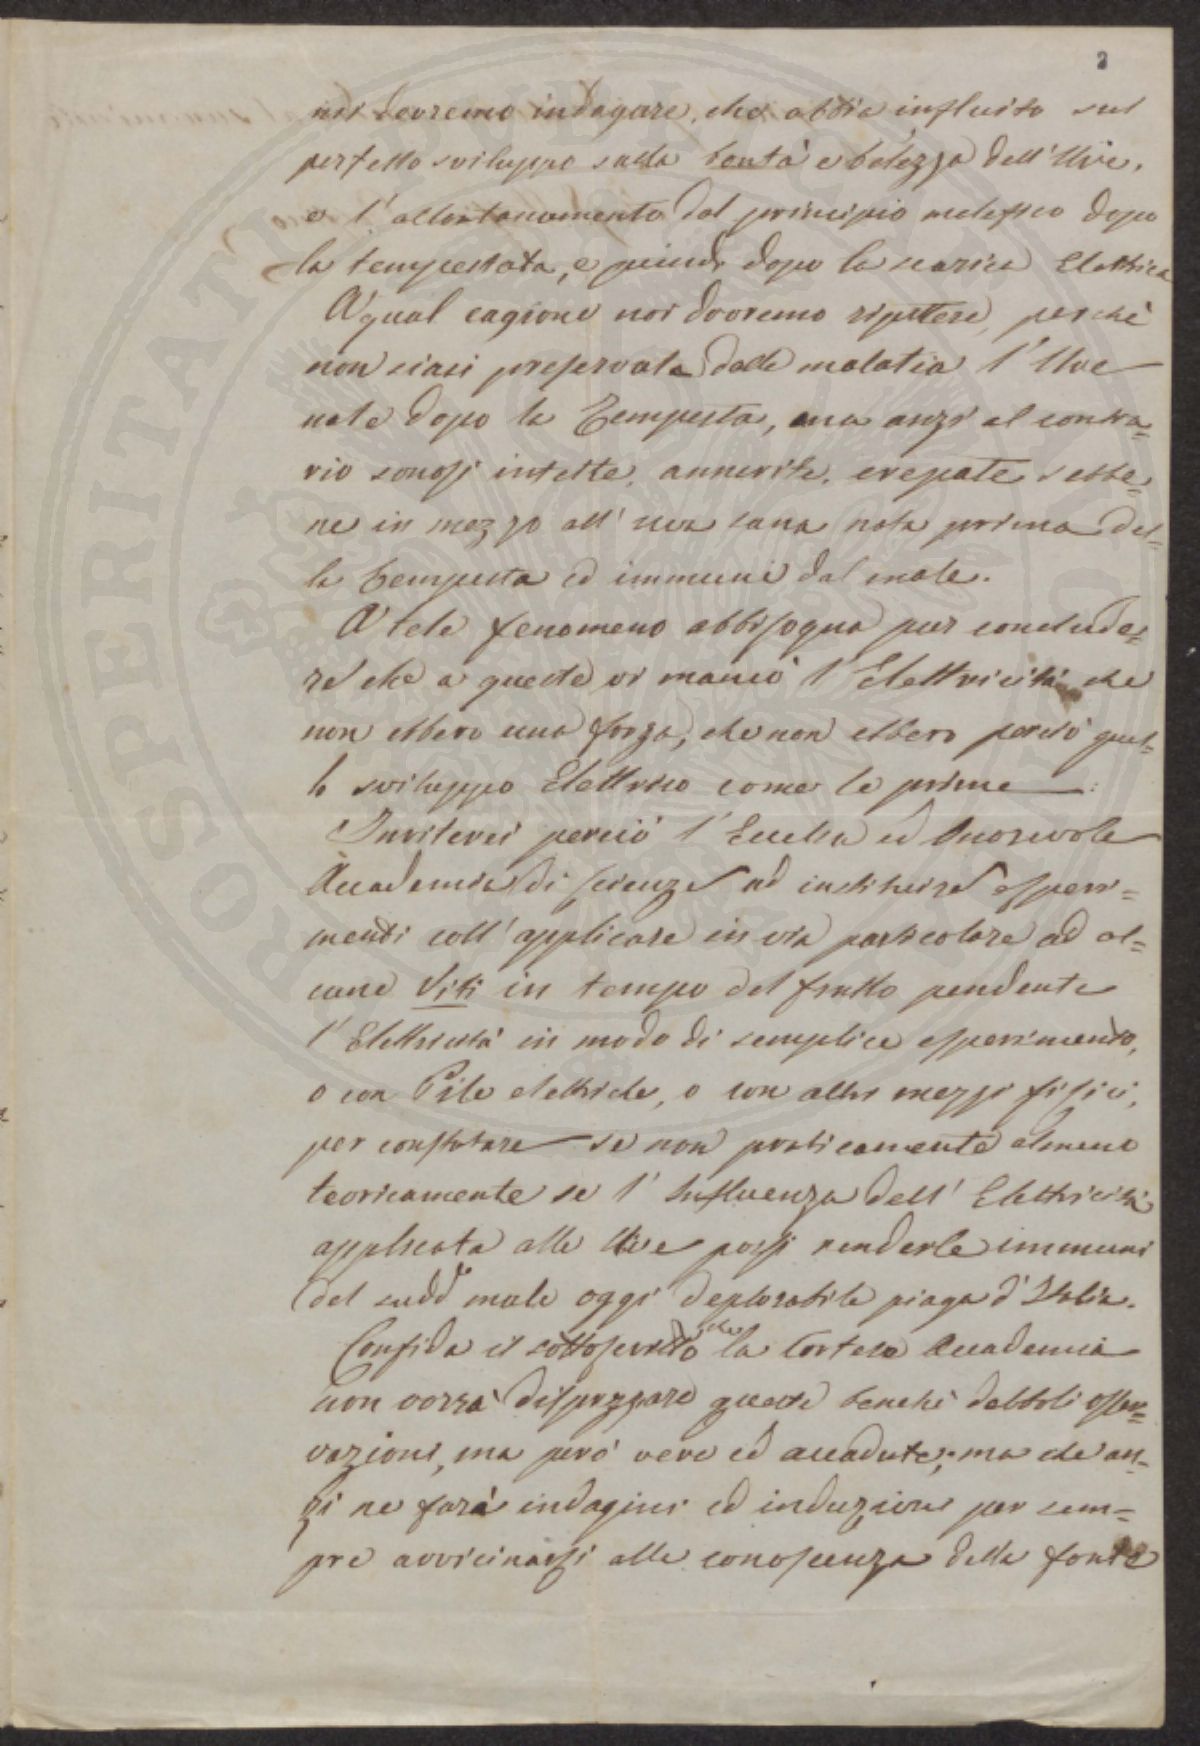 2
noi dovremo indagare, che abbia influito sul
perfetto sviluppo sulla bontà e belezza dell'Uve,
o l'allontanamento dal principio malefico dopo
la tempestata, e quindi dopo la scarica Elettrica
A qual cagione noi dovremo ripetere, perchè
non siasi preservata dalla malatia l'Uve
nate dopo la Tempesta, ma anzi al contra=
rio sonosi infette, annerite, crepate sebbe=
ne in mezzo all'uva sana nata prima del=
la tempesta ed immune dal male.
A tale fenomeno abbisogna pur conclude=
re che a queste vi mancò l'Elettricità che
non ebbero una forza, che non ebbero perciò quel=
lo sviluppo Elettrico come le prime
Inviterei perciò l'Eccelsa ed Onorevole
Accademia di scienze ad instituire esperi=
menti coll'applicare in via particolare ad al=
cune Viti in tempo del frutto pendente
l'Elettricità in modo di semplice esperimento,
o con Pile elettriche, o con altri mezzi fisici,
per constatare se non praticamente almeno
teoricamente se l'Influenza dell'Elettricità
applicata alle Uve possi renderle immuni
del sudd male oggi deplorabile piaga d'Italia.
Confida il sottoscritto che la Cortese Accademia
non vorrà disprezzare queste benchè debboli osser=
vazioni, ma però vere ed accadute; ma che an=
zi ne farà indagini ed induzioni per sem=
pre avvicinarsi alla conoscenza della fonte
PROSPERITATI PUBLICAE